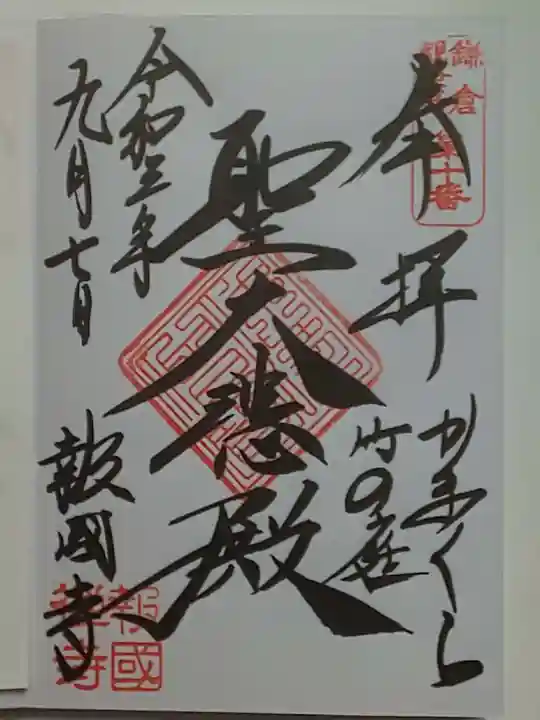 鎌倉
第十番
奉拝
かまくら
竹の庭
聖大悲殿
令和三年
九月七日
報國寺
報國
禅寺